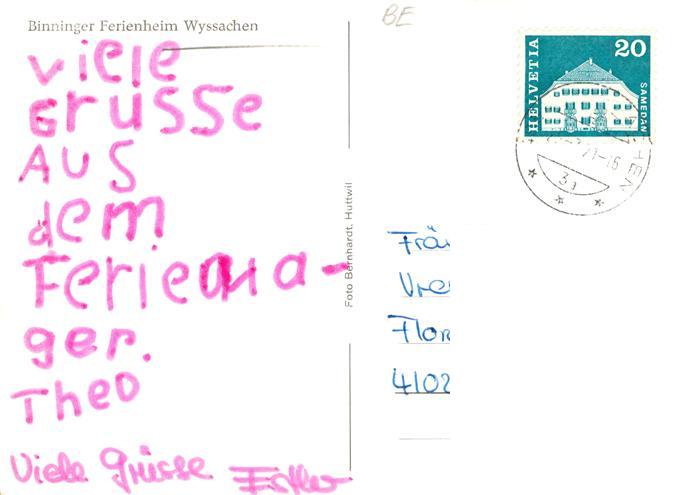 Binninger Ferienheim Wyssachen
Viele
Grüsse
Aus
dem
Feriena-
ger.
Theo
Viele Grüsse Esther
Foto Bernhardt, Huttwil
BE
HELVETIA
20
SAMEDAN
3a
Fräu
Vre
Flor
4102